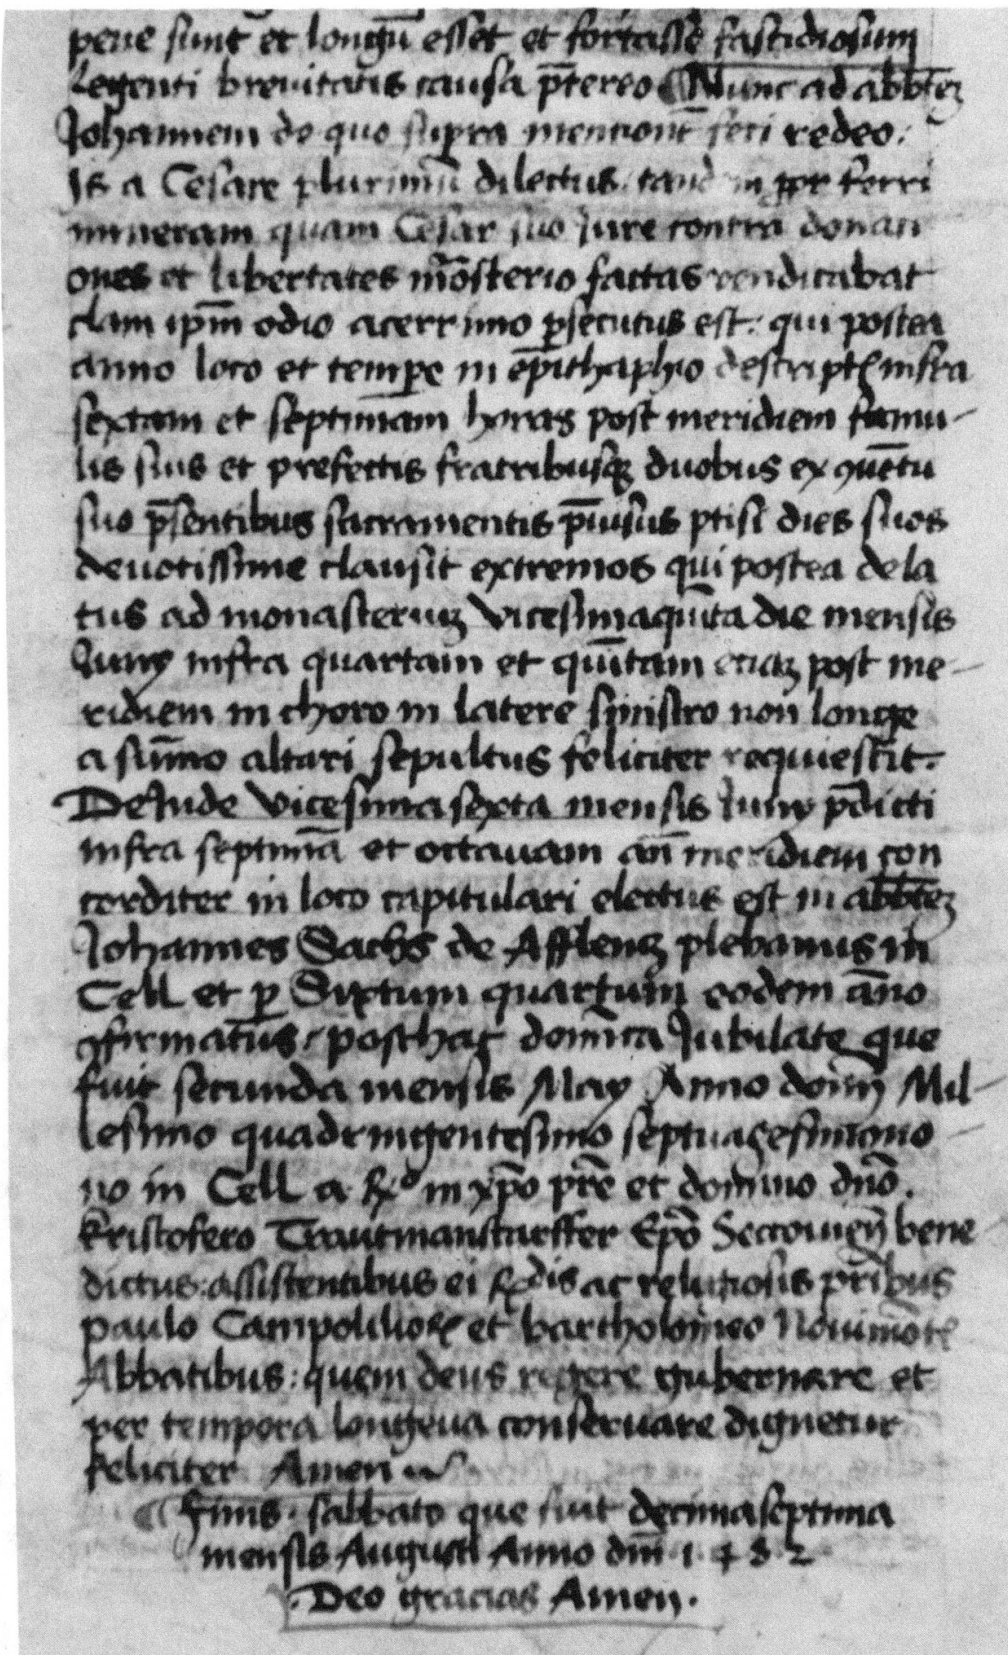 pene sunt et longū esset et fortasse fastidiosum
Legenti breuitatis causa p̄tereo Nunc ad abb̄teꝫ
Johannem de quo supra mentionē feci redeo.
Is a Cesare plurimū dilectus. tandem ꝓpter ferri
mineram quam Cesar suo Jure contra donati
ones et libertates m̄osterio factas vendicabat
clam ip̄m odio acerrimo ꝑsecutus est: qui postea
anno loco et temꝑe in ep̄ithaphio descript infra
sextam et septimam horas post meridiem famu-
lis suis et prefectis fratribusqꝫ duobus ex 9uētu
suo p̄sentibus sacramentis p̄uisus ptisi dies suos
deuotissime clausit extremos qui postea dela
tus ad monasteriuꝫ vicesimaquīta die mensis
Juny infra quartam et quītam eciaꝫ post me-
ridiem in choro in latere sinistro non longe
a sūmo altari sepultus feliciter requiescit.
DeInde vicesimasexta mensis Juny p̄dicti
infra septimā et octauam an̄ meridiem con
corditer in loco capitulari electus est in abb̄teꝫ
Johannes Sachs de Afflenꝫ plebanus in
Cell et ꝑ Sixtum quartum eodem āno
9firmatus. posthac domīca Jubilate que
fuit secunda mensis May Anno domī Mil-
lesimo quadringentesimo septuagesimono-
no in Cell a R̄o in xp̄o pr̄e et domino dn̄o.
kristofero Trautmanstarffer Ep̄o Seccouien̄ bene-
dictus: assistentibus ei R̄dis ac religiosis pr̄ibus
paulo Campolilior et bartholomeo Nouimōt
Abbatibus: quem deus regere gubernare et
per tempora longeua conseruare dignetur
feliciter Amen
Finis. sabbato que fuit decimaseptima
mensis Augusti Anno dm̄ 1.4.8.2
.Deo gracias Amen.